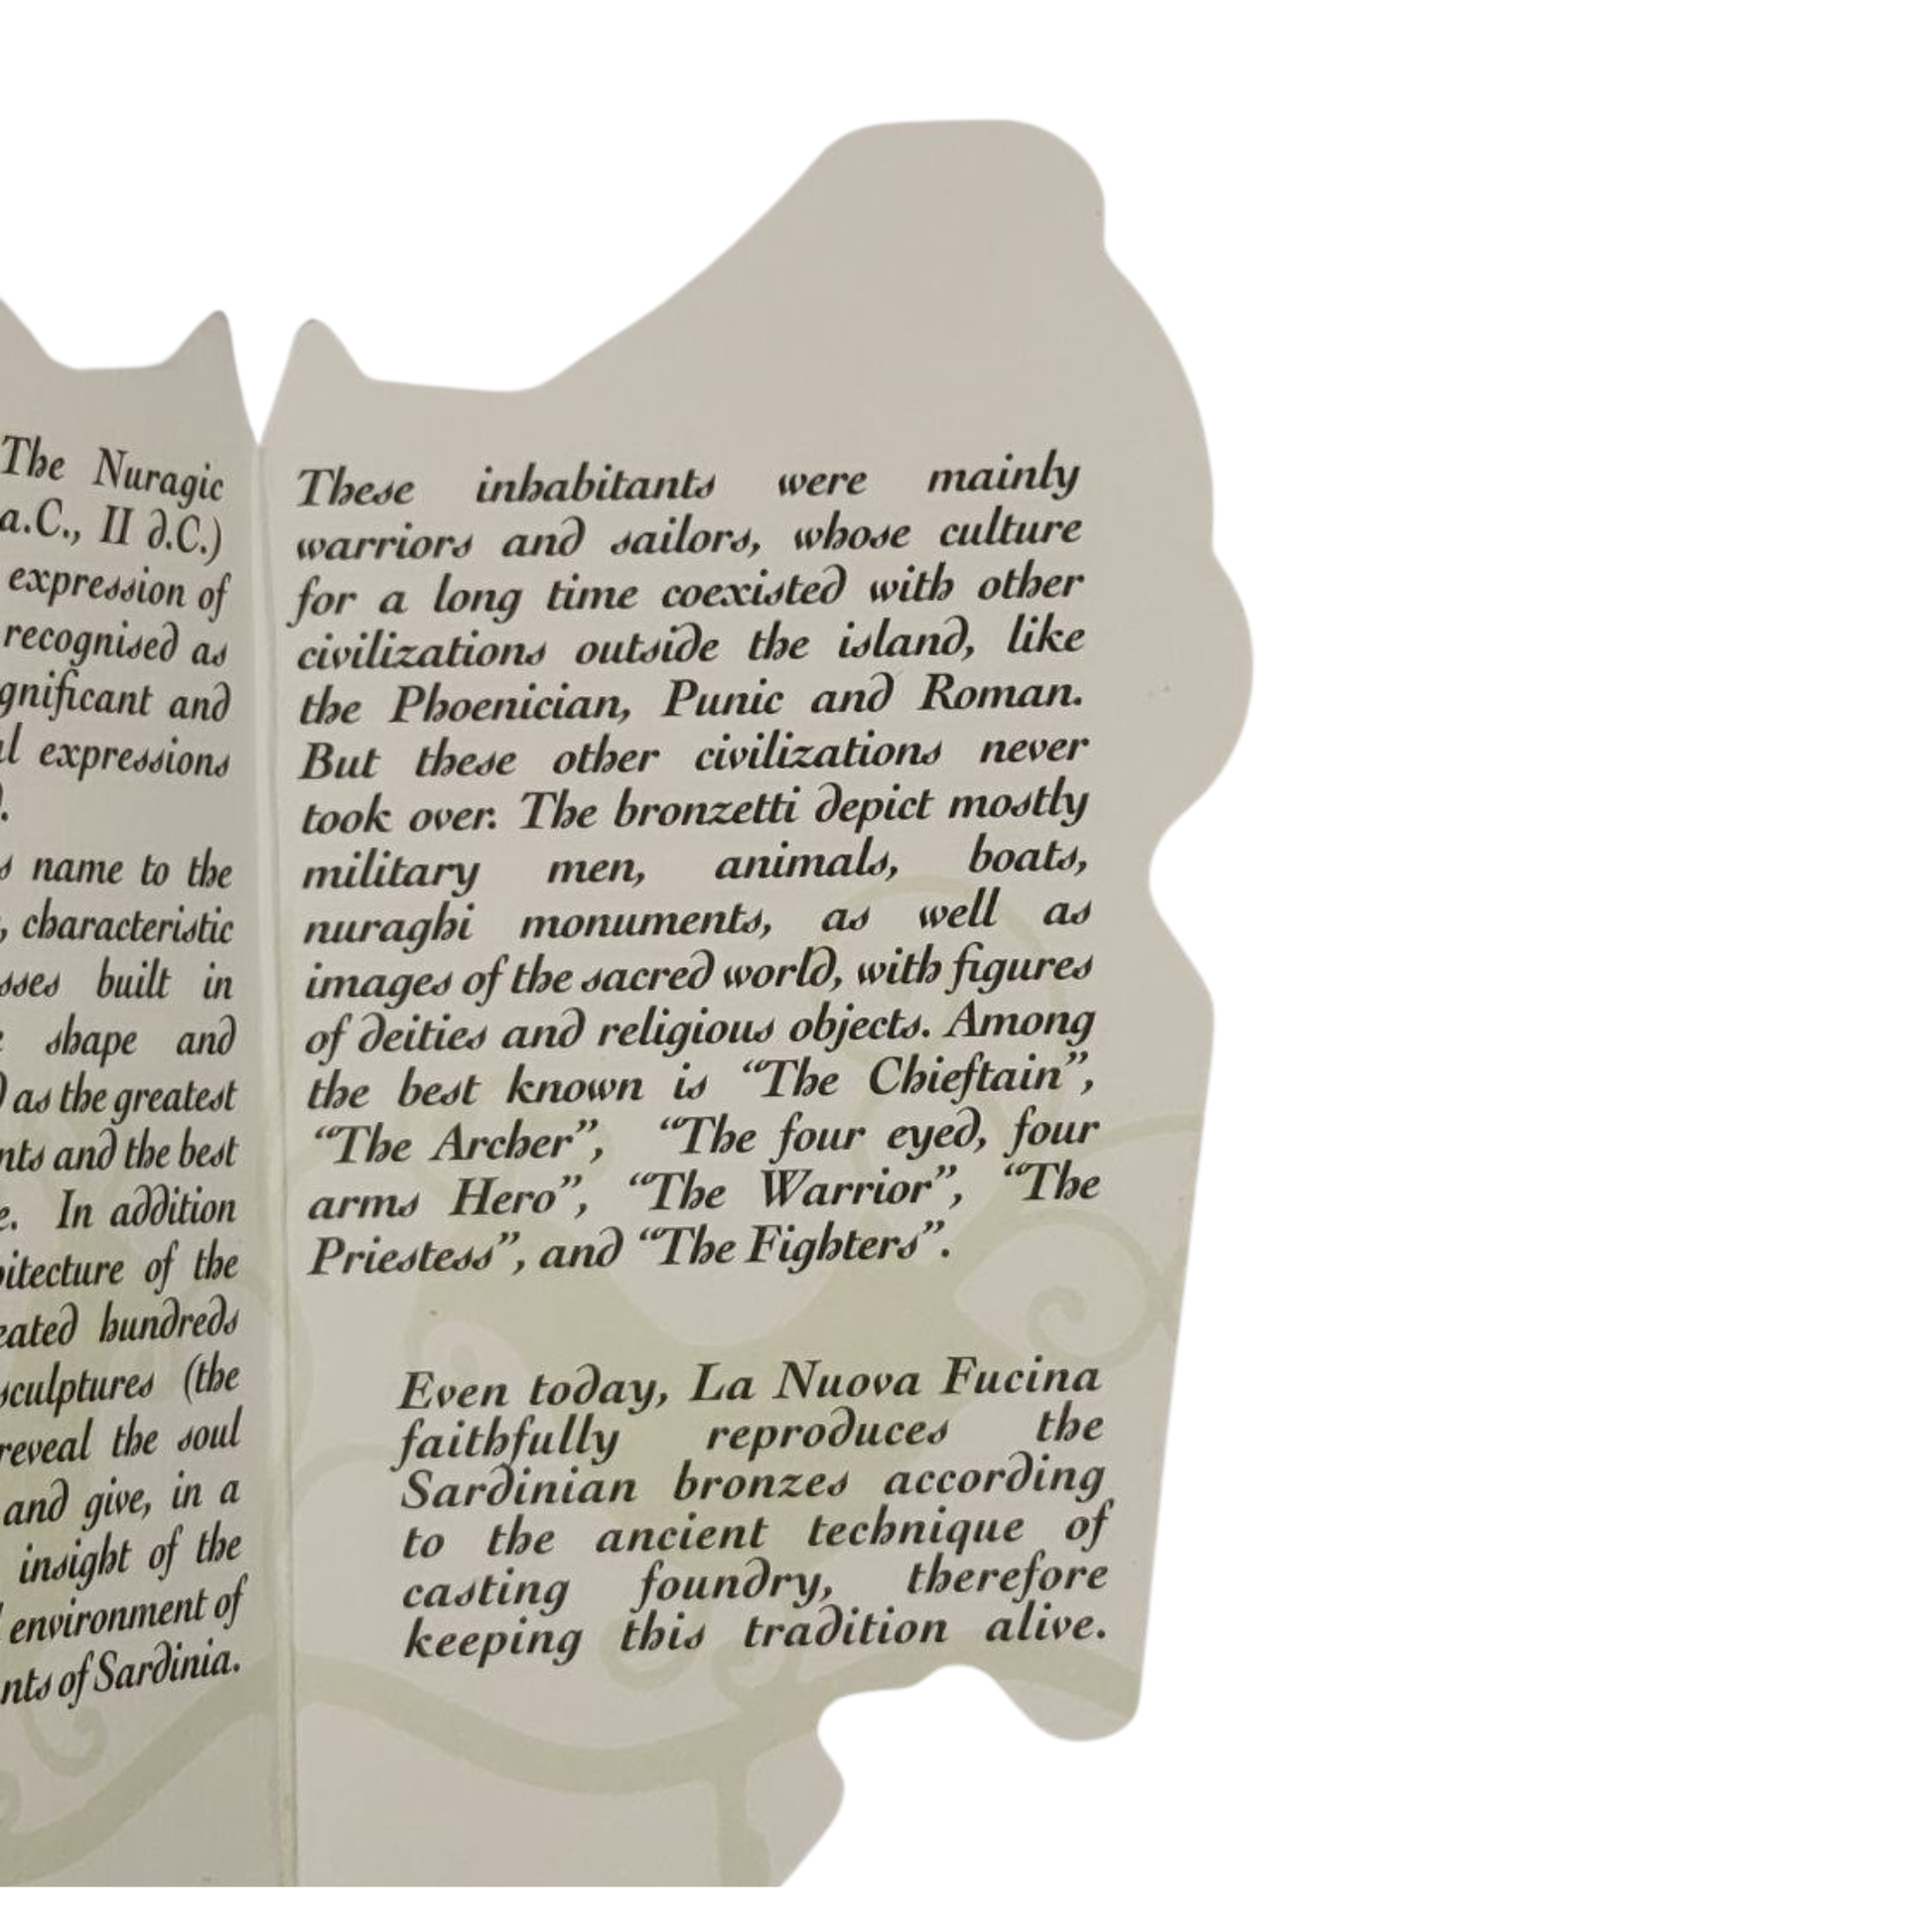 The Nuragic
a.C., II d.C.)
expression of
recognised as
and
expressions
name to the
, characteristic
built in
shape and
as the greatest
and the best
In addition
of the
hundreds
sculptures (the
reveal the soul
and give, in a
insight of the
environment of
of Sardinia.
These inhabitants were mainly
warriors and sailors, whose culture
for a long time coexisted with other
civilizations outside the island, like
the Phoenician, Punic and Roman.
But these other civilizations never
took over. The bronzetti depict mostly
military men, animals, boats,
nuraghi monuments, as well as
images of the sacred world, with figures
of deities and religious objects. Among
the best known is “The Chieftain”,
“The Archer”, “The four eyed, four
arms Hero”, “The Warrior”, “The
Priestess”, and “The Fighters”.
Even today, La Nuova Fucina
faithfully reproduces the
Sardinian bronzes according
to the ancient technique of
casting foundry, therefore
keeping this tradition alive.